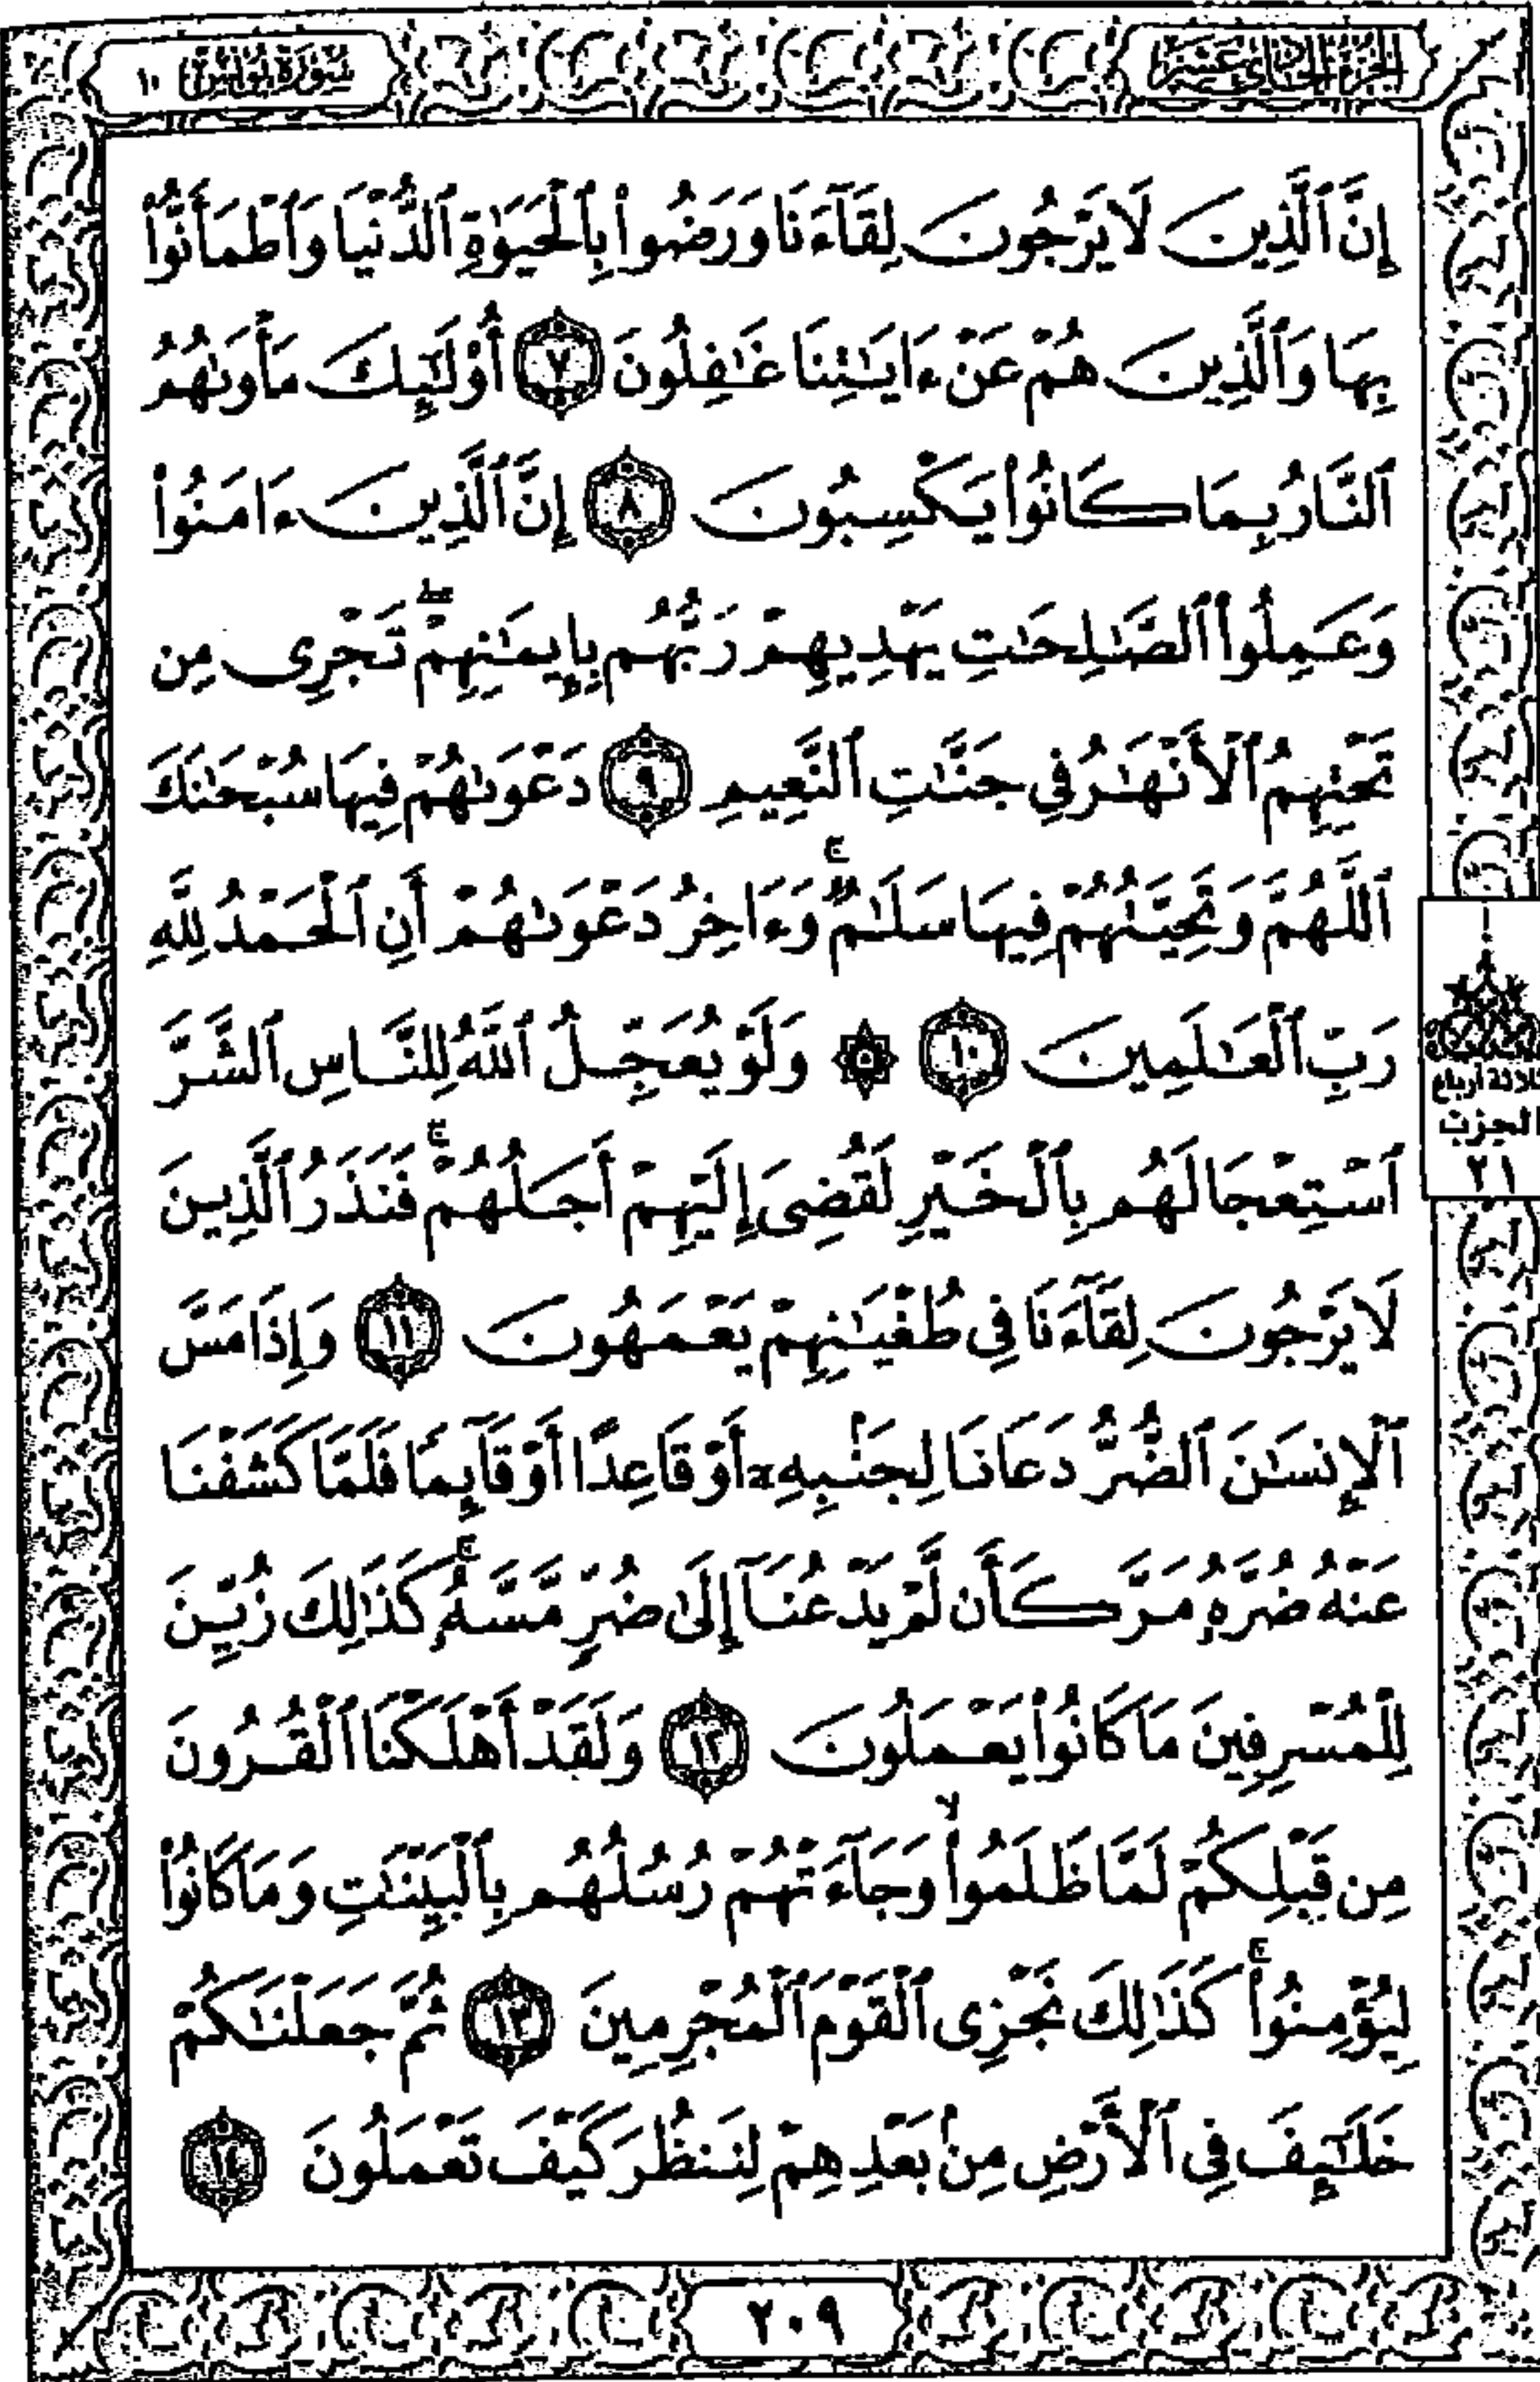 الجزء الحادي عشر
سورة يونس ١٠
إِنَّ ٱلَّذِينَ لَا يَرْجُونَ لِقَآءَنَا وَرَضُوا۟ بِٱلْحَيَوٰةِ ٱلدُّنْيَا وَٱطْمَأَنُّوا۟
بِهَا وَٱلَّذِينَ هُمْ عَنْ ءَايَٰتِنَا غَٰفِلُونَ ٧ أُو۟لَٰٓئِكَ مَأْوَىٰهُمُ
ٱلنَّارُ بِمَا كَانُوا۟ يَكْسِبُونَ ٨ إِنَّ ٱلَّذِينَ ءَامَنُوا۟
وَعَمِلُوا۟ ٱلصَّٰلِحَٰتِ يَهْدِيهِمْ رَبُّهُم بِإِيمَٰنِهِمْ ۖ تَجْرِى مِن
تَحْتِهِمُ ٱلْأَنْهَٰرُ فِى جَنَّٰتِ ٱلنَّعِيمِ ٩ دَعْوَىٰهُمْ فِيهَا سُبْحَٰنَكَ
ٱللَّهُمَّ وَتَحِيَّتُهُمْ فِيهَا سَلَٰمٌ ۚ وَءَاخِرُ دَعْوَىٰهُمْ أَنِ ٱلْحَمْدُ لِلَّهِ
رَبِّ ٱلْعَٰلَمِينَ ١٠ ۞ وَلَوْ يُعَجِّلُ ٱللَّهُ لِلنَّاسِ ٱلشَّرَّ
ٱسْتِعْجَالَهُم بِٱلْخَيْرِ لَقُضِىَ إِلَيْهِمْ أَجَلُهُمْ ۖ فَنَذَرُ ٱلَّذِينَ
لَا يَرْجُونَ لِقَآءَنَا فِى طُغْيَٰنِهِمْ يَعْمَهُونَ ١١ وَإِذَا مَسَّ
ٱلْإِنسَٰنَ ٱلضُّرُّ دَعَانَا لِجَنۢبِهِۦٓ أَوْ قَاعِدًا أَوْ قَآئِمًا فَلَمَّا كَشَفْنَا
عَنْهُ ضُرَّهُۥ مَرَّ كَأَن لَّمْ يَدْعُنَآ إِلَىٰ ضُرٍّ مَّسَّهُۥ ۚ كَذَٰلِكَ زُيِّنَ
لِلْمُسْرِفِينَ مَا كَانُوا۟ يَعْمَلُونَ ١٢ وَلَقَدْ أَهْلَكْنَا ٱلْقُرُونَ
مِن قَبْلِكُمْ لَمَّا ظَلَمُوا۟ ۙ وَجَآءَتْهُمْ رُسُلُهُم بِٱلْبَيِّنَٰتِ وَمَا كَانُوا۟
لِيُؤْمِنُوا۟ ۚ كَذَٰلِكَ نَجْزِى ٱلْقَوْمَ ٱلْمُجْرِمِينَ ١٣ ثُمَّ جَعَلْنَٰكُمْ
خَلَٰٓئِفَ فِى ٱلْأَرْضِ مِنۢ بَعْدِهِمْ لِنَنظُرَ كَيْفَ تَعْمَلُونَ ١٤
ثلاثة أرباع
الحزب
٢١
٢٠٩